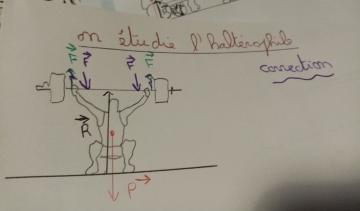 on étudie l'haltérophile
correction
F F F F
R
P